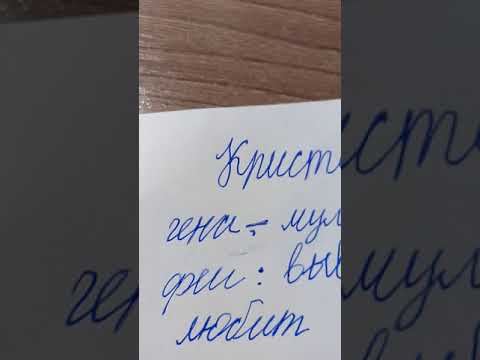 Крист
гена÷ мул
феи: выв
любит